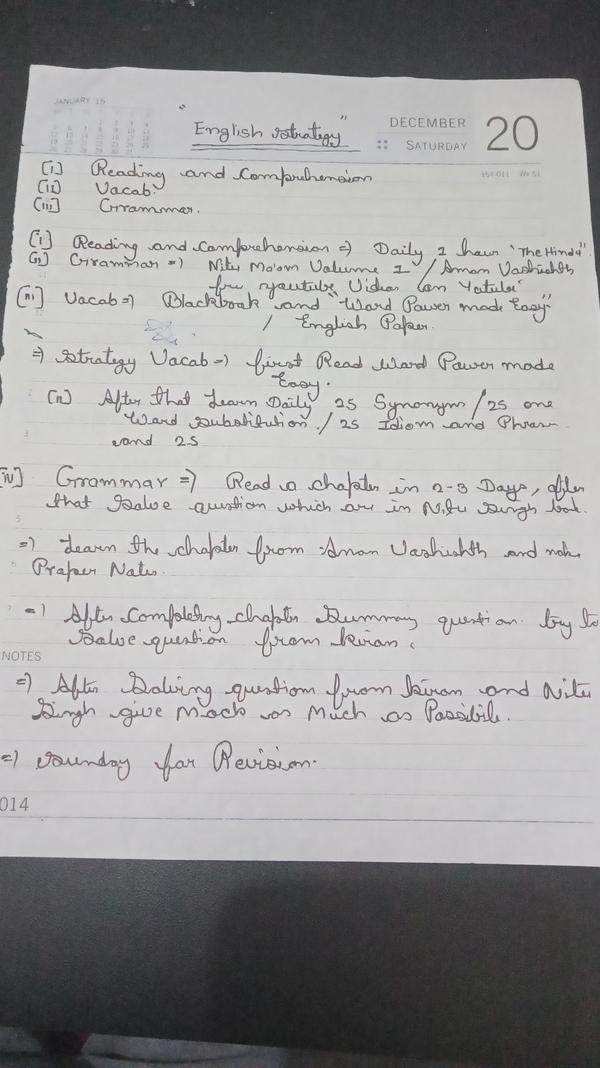 JANUARY 15
DECEMBER 20
SATURDAY
"English Strategy"
354-011 Wk 51
[i] Reading and Comprehension
[ii] Vacab.
[iii] Grammar.
[i] Reading and Comprehension => Daily 1 hour "The Hindu"
[ii] Grammar => Nitu Ma'am Valume 1 / Aman Vashishth
free youtube Vidios (on Yotube"
[iii] Vacab => Blackbook and "Word Power made Easy"
/ English Paper.
=> Strategy Vacab => first Read Word Power made
Easy.
(ii) After that Learn Daily 25 Synonym / 25 one
Word Substitution / 25 Idiom and Phrase
and 25
[iv] Grammar => Read a chapter in 2-3 Days, after
that Solve question which are in Nitu Singh book.
=> Learn the chapter from Aman Vashishth and make
Praper Notes.
=> After Completing chapter Summary question try to
Solve question from kiran.
NOTES
=> After Solving question from kiran and Nitu
Singh give Mock as Much as Possibile.
=> Sunday for Revision.
014